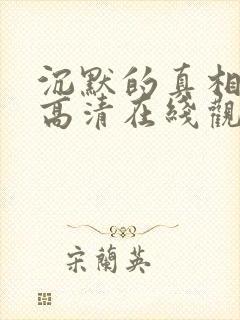 沉默的真相
高清在綫觀
宋蘭英